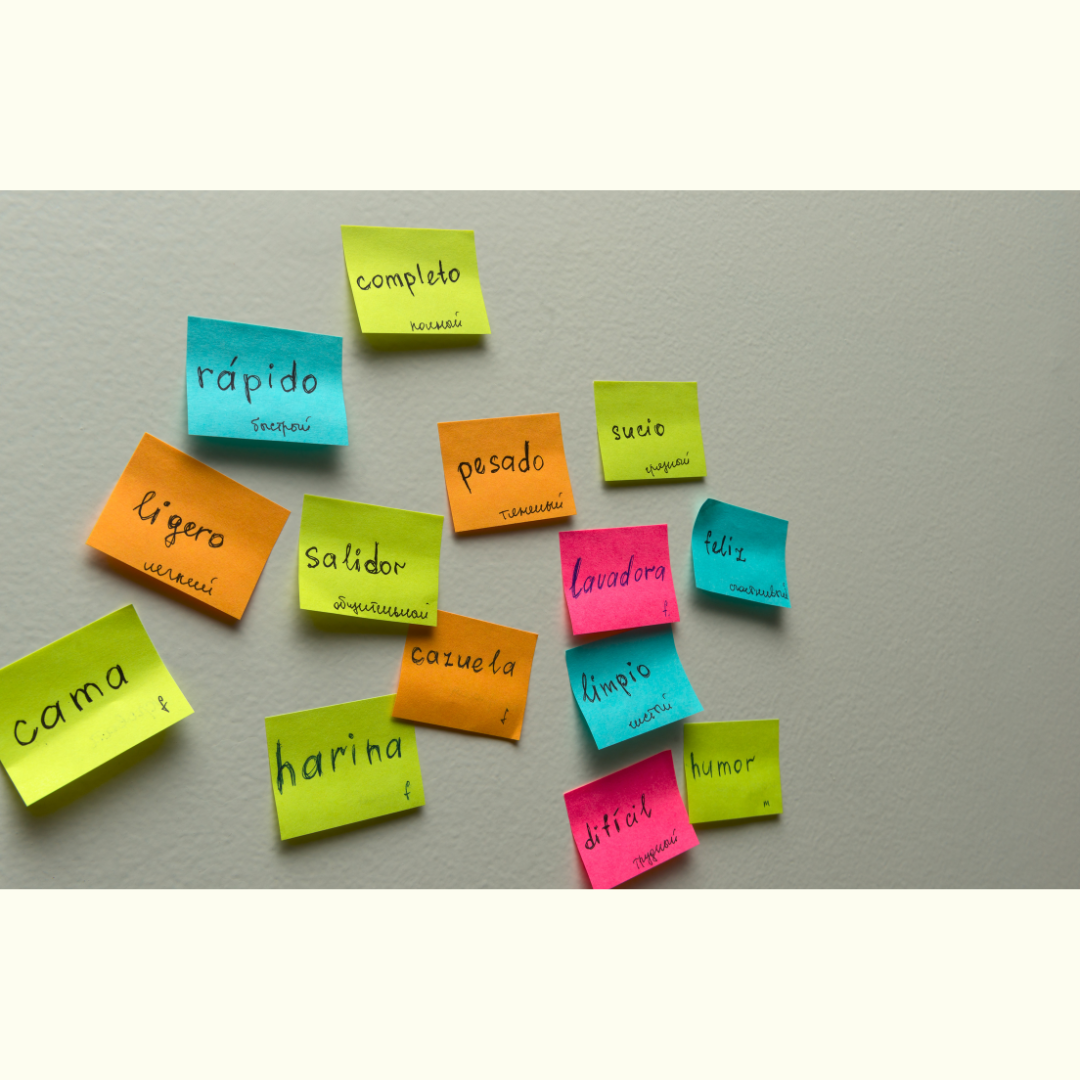 completo
полный
rápido
быстрый
sucio
грязный
pesado
тяжелый
ligero
легкий
salidor
общительный
feliz
счастливый
lavadora
f.
cama
f
cazuela
f
limpio
чистый
harina
f
humor
m
difícil
трудный